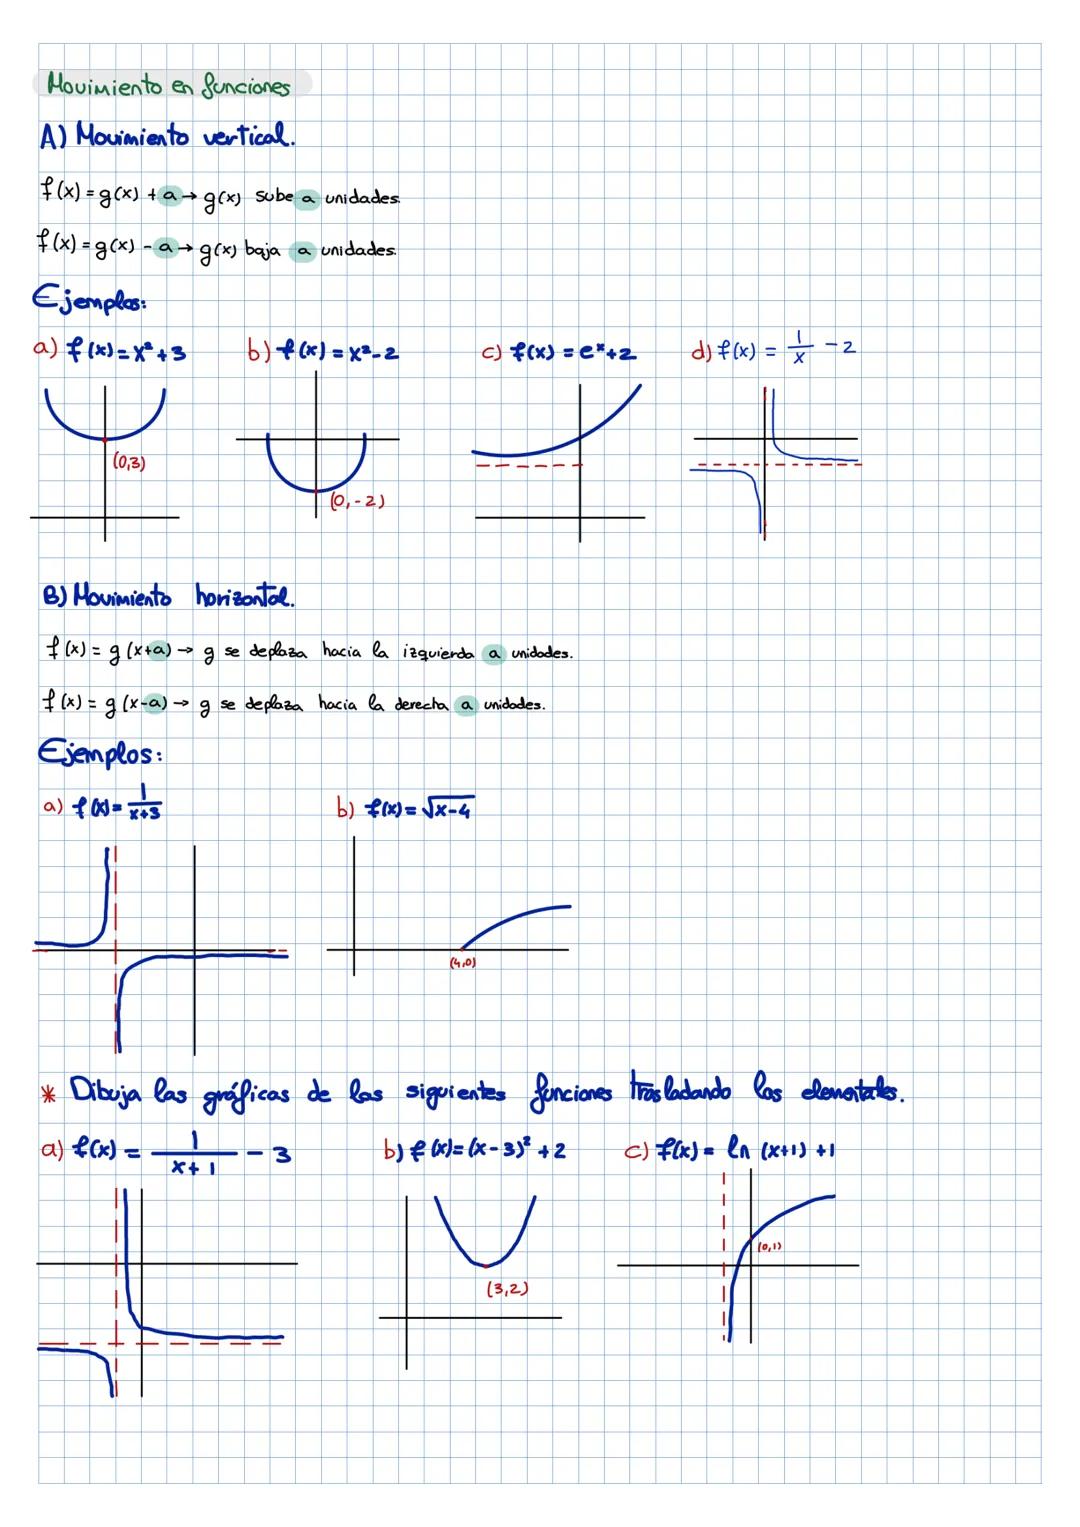 Movimiento en funciones
A) Movimiento vertical.
f(x) = g(x) + a → g(x) sube a unidades.
f(x) = g(x) - a → g(x) baja a unidades.
Ejemplos:
a) f(x) = x² + 3 b) f(x) = x² - 2 c) f(x) = eˣ + 2 d) f(x) = 1/x - 2
(0,3)
(0,-2)
B) Movimiento horizontal.
f(x) = g(x+a) → g se deplaza hacia la izquierda a unidades.
f(x) = g(x-a) → g se deplaza hacia la derecha a unidades.
Ejemplos:
a) f(x) = 1/x+3 b) f(x) = √x-4
(4,0)
* Dibuja las gráficas de las siguientes funciones trasladando las elementales.
a) f(x) = 1/x+1 - 3 b) f(x) = (x-3)² + 2 c) f(x) = ln (x+1) + 1
(0,1)
(3,2)